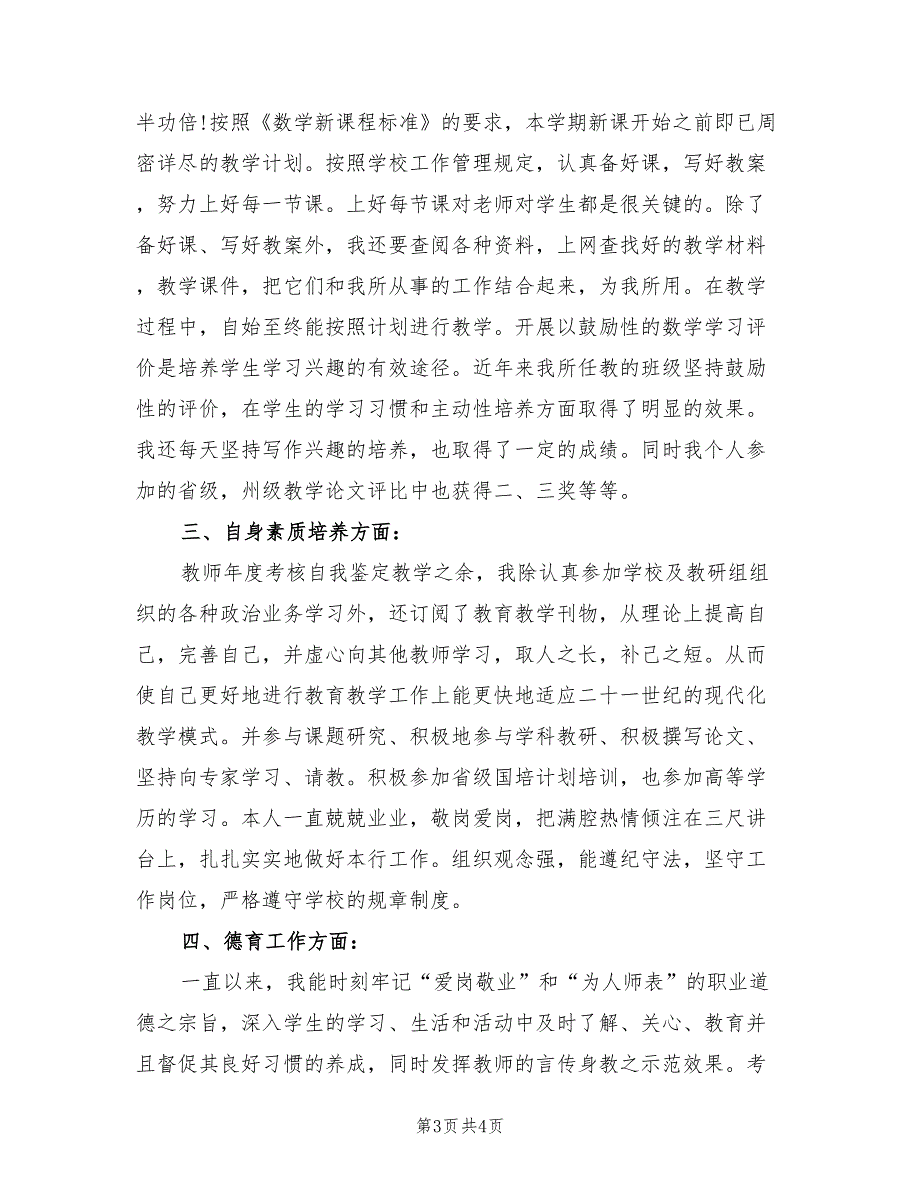 半功倍!按照《数学新课程标准》的要求，本学期新课开始之前即已周
密详尽的教学计划。按照学校工作管理规定，认真备好课，写好教案
，努力上好每一节课。上好每节课对老师对学生都是很关键的。除了
备好课、写好教案外，我还要查阅各种资料，上网查找好的教学材料
，教学课件，把它们和我所从事的工作结合起来，为我所用。在教学
过程中，自始至终能按照计划进行教学。开展以鼓励性的数学学习评
价是培养学生学习兴趣的有效途径。近年来我所任教的班级坚持鼓励
性的评价，在学生的学习习惯和主动性培养方面取得了明显的效果。
我还每天坚持写作兴趣的培养，也取得了一定的成绩。同时我个人参
加的省级，州级教学论文评比中也获得二、三奖等等。
三、自身素质培养方面：
教师年度考核自我鉴定教学之余，我除认真参加学校及教研组组
织的各种政治业务学习外，还订阅了教育教学刊物，从理论上提高自
己，完善自己，并虚心向其他教师学习，取人之长，补己之短。从而
使自己更好地进行教育教学工作上能更快地适应二十一世纪的现代化
教学模式。并参与课题研究、积极地参与学科教研、积极撰写论文、
坚持向专家学习、请教。积极参加省级国培计划培训，也参加高等学
历的学习。本人一直兢兢业业，敬岗爱岗，把满腔热情倾注在三尺讲
台上，扎扎实实地做好本行工作。组织观念强，能遵纪守法，坚守工
作岗位，严格遵守学校的规章制度。
四、德育工作方面：
一直以来，我能时刻牢记“爱岗敬业”和“为人师表”的职业道
德之宗旨，深入学生的学习、生活和活动中及时了解、关心、教育并
且督促其良好习惯的养成，同时发挥教师的言传身教之示范效果。考
第3页 共4页